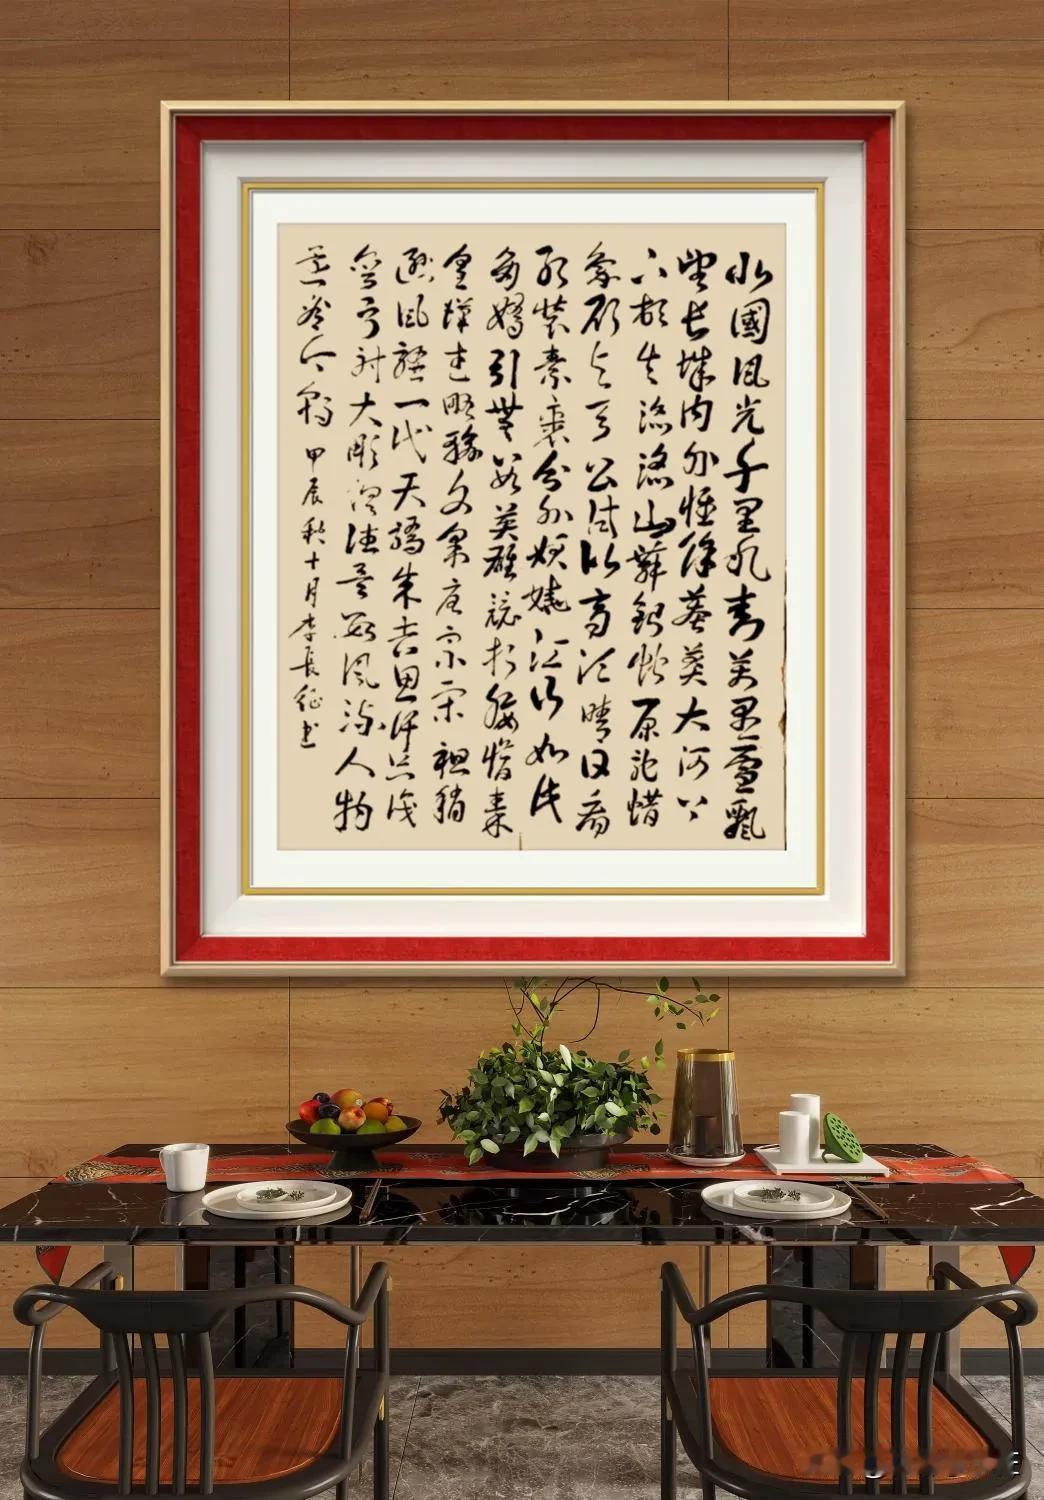 北國风光千里冰封萬里雪飄
望长城内外惟馀莽莽大河上
下頓失滔滔山舞銀蛇原馳蜡
象欲与天公试比高须晴日看
红裝素裹分外妖娆江山如此
多嬌引無數英雄競折腰惜秦
皇漢武略輸文采唐宗宋祖稍
遜风騷一代天驕成吉思汗只識
彎弓射大彫俱往矣數風流人物
還看今朝 甲辰秋十月李長征书